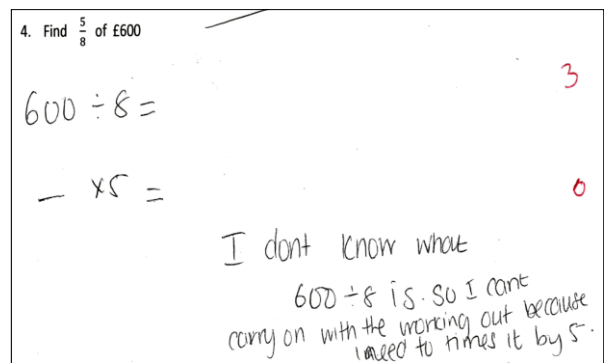 4. Find 5/8 of £600
3
600 ÷ 8 =
— x5 =
0
I dont know what
600 ÷ 8 is. So I cant
carry on with the working out because
i need to times it by 5.